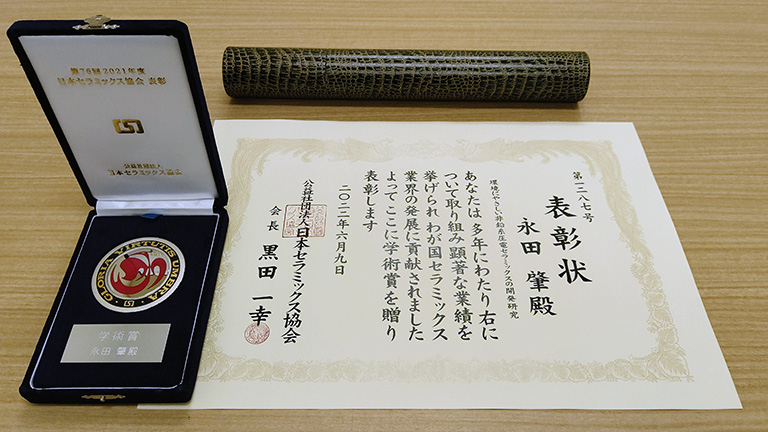 第76回2021年度
日本セラミックス協会 表彰
公益社団法人
日本セラミックス協会
GLORIA VIRTUTIS UMBRA
学術賞
永田 肇殿
第一二八七号
表彰状
永田 肇殿
環境にやさしい非鉛系圧電セラミックスの開発研究
あなたは 多年にわたり右に
ついて取り組み 顕著な業績を
挙げられ わが国セラミックス
業界の発展に貢献されました
よってここに学術賞を贈り
表彰します
二〇二二年六月九日
公益社団法人日本セラミックス協会
会長 黒田 一幸